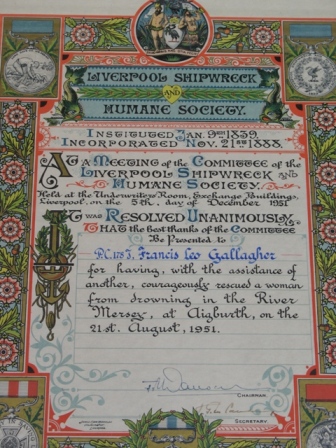 LIVERPOOL SHIPWRECK
AND
HUMANE SOCIETY.
INSTITUTED JAN. 9TH 1839.
INCORPORATED NOV. 21ST 1888.
AT A MEETING of the COMMITTEE of the
LIVERPOOL SHIPWRECK AND
HUMANE SOCIETY.
Held at the Underwriters' Room, Exchange Buildings,
Liverpool, on the 5th, day of December 1951
IT WAS RESOLVED UNANIMOUSLY,
THAT the best thanks of the COMMITTEE
Be Presented to
P.C. 178 J, Francis Leo Gallagher
for having, with the assistance of
another, courageously rescued a woman
from drowning in the River
Mersey, at Aigburth, on the
21st. August, 1951.
CHAIRMAN.
SECRETARY.